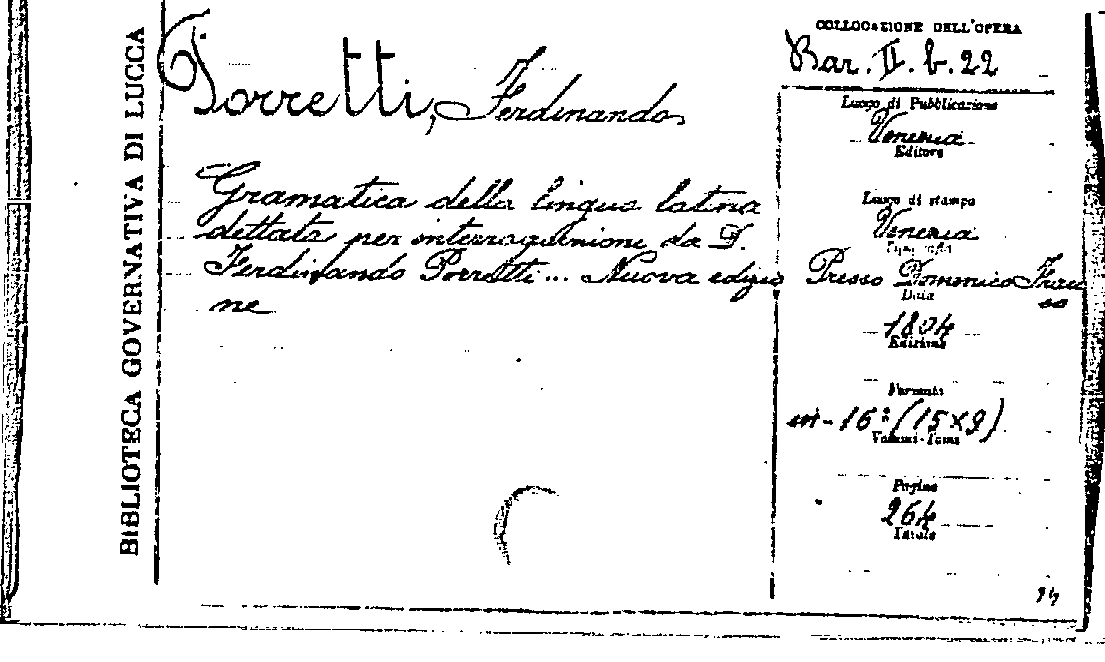 BIBLIOTECA GOVERNATIVA DI LUCCA
Porretti, Ferdinando
Gramatica della lingua latina
dettata per interrogazione da D.
Ferdinando Porretti... Nuova edizio
ne
COLLOCAZIONE DELL'OPERA
Bar. II. b. 22
Luogo di Pubblicazione
Venezia
Editore
Luogo di stampa
Venezia
Tipografia
Presso Domenico
Data
1804
Edizione
Formato
in-16º (15x9)
Volumi-Tomi
Pagine
264